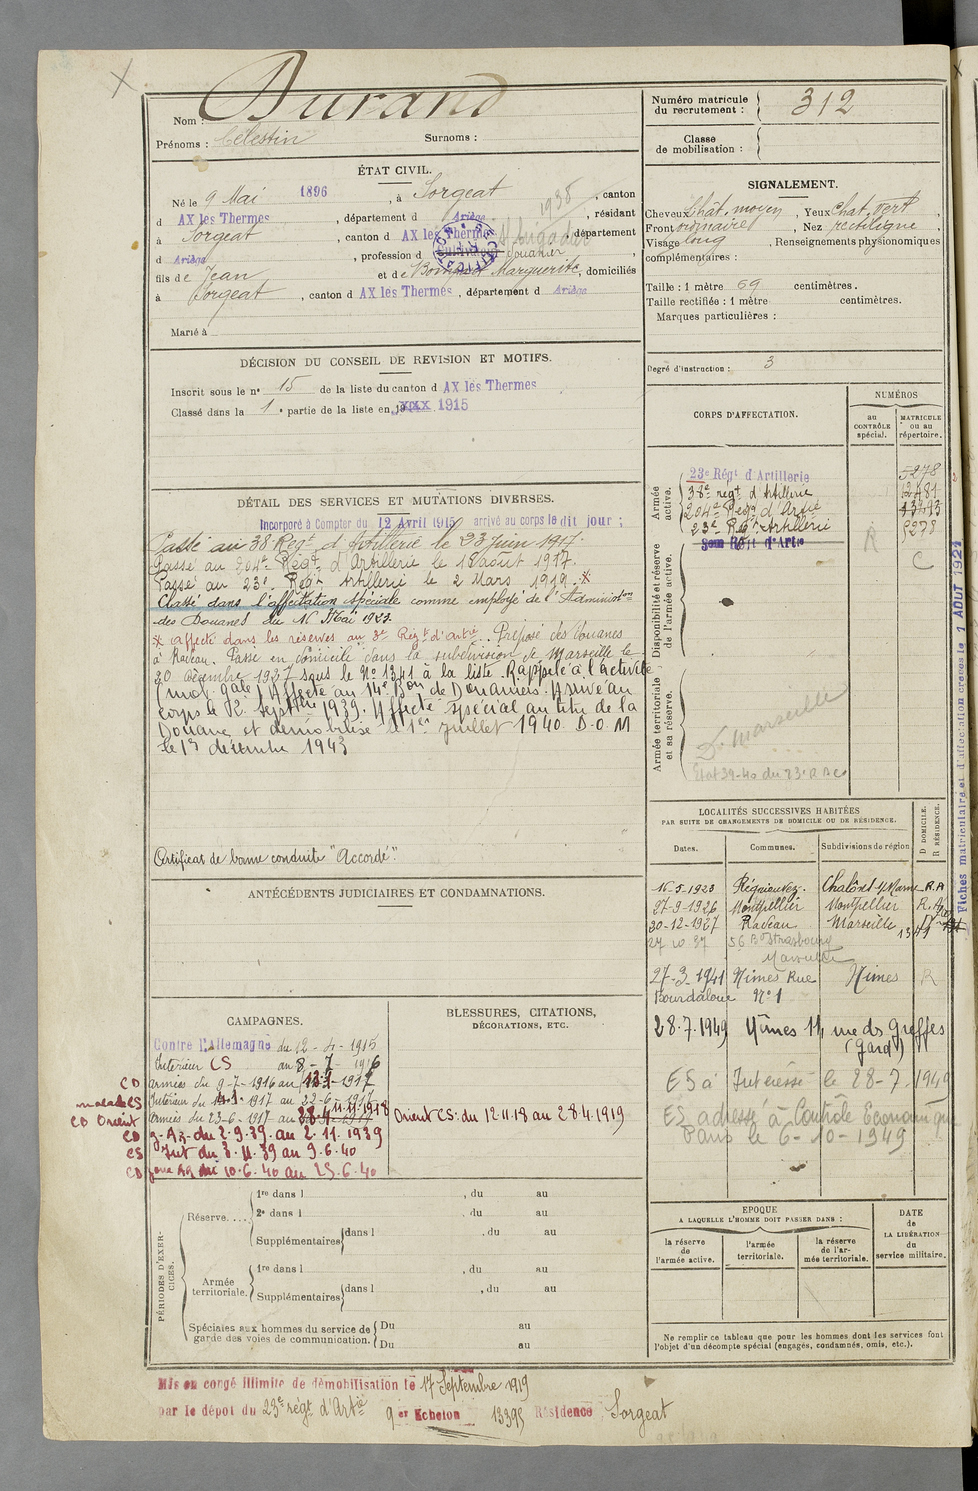 Nom : Durand
Prénoms : Célestin Surnoms :
ÉTAT CIVIL.
Né le 9 Mai 1896, à Sorgeat, canton
d AX les Thermes, département d Ariège, résidant
à Sorgeat, canton d AX les Thermes, département
d Ariège, profession d Cultivateur douanier
fils de Jean et de Marguerite, domiciliés
à Sorgeat, canton d AX les Thermes, département d Ariège
Marié à
DÉCISION DU CONSEIL DE REVISION ET MOTIFS.
Inscrit sous le n° 15 de la liste du canton d AX les Thermes
Classé dans la 1e partie de la liste en 19 1915
DÉTAIL DES SERVICES ET MUTATIONS DIVERSES.
Incorporé à Compter du 12 Avril 1915 arrivé au corps le dit jour ;
Passé au 38 Regt d'Artillerie le 23 juin 1917.
Passé au 204e Régt d'Artillerie le 18 aout 1917.
Passé au 23e Régt Artillerie le 2 Mars 1919. *
Classé dans l'affectation spéciale comme employé de l'Administon
des Douanes du 16 Mai 1923.
* affecté dans les réserves au 3e Régt d'artie. Préposé des douanes
à Radeau. Passé en domicile dans la subdivision de Marseille le
30 décembre 1927 sous le N° 1341 à la liste. Rappelé à l'activité
(mob. gale) Affecté au 14e Bon de Douaniers. Arrivé au
corps le 2 Septbre 1939. Affecté spécial au titre de la
Douane et démobilisé le 1er juillet 1940. D.O.M
le 1er décembre 1943
Certificat de bonne conduite "Accordé".
ANTÉCÉDENTS JUDICIAIRES ET CONDAMNATIONS.
CAMPAGNES.
Contre l'Allemagne du 12-4-1915
Intérieur CS au 8-7-1916
CD armées du 9-7-1916 au 1917
malade CS Intérieur du 1917 au 22-6-1917
CD Orient armées du 23-6-1917 au 11.11.1918
CD g. Az. du 2.9.39. au 2.11.1939
CS Int du 3.11.39 au 9.6.40
CD du 10.6.40 au 25.6.40
BLESSURES, CITATIONS,
DÉCORATIONS, ETC.
Orient CS: du 12.11.18 au 28.4.1919
PÉRIODES D'EXERCICES.
Réserve....
1re dans l , du au
2e dans l , du au
Supplémentaires dans l , du au
Armée
territoriale.
1re dans l , du au
Supplémentaires dans l , du au
Spéciales aux hommes du service de
garde des voies de communication.
Du au
Du au
Mis en congé illimité de démobilisation le 17 Septembre 1919
par le dépot du 23e régt d'Artie 9er Echelon 13395 Résidence Sorgeat
Numéro matricule
du recrutement : 312
Classe
de mobilisation :
SIGNALEMENT.
Cheveux chât. moyen, Yeux chat. vert,
Front ordinaire, Nez rectiligne,
Visage long, Renseignements physionomiques
complémentaires :
Taille : 1 mètre 69 centimètres.
Taille rectifiée : 1 mètre centimètres.
Marques particulières :
Degré d'instruction : 3
CORPS D'AFFECTATION.
NUMÉROS
au
CONTRÔLE
spécial.
MATRICULE
ou au
répertoire.
Armée
active.
23e Régt d'Artillerie 5278
38e regt d'Artillerie 12481
204e Regt d'Artie
23e Régt Artillerie 5278
R
C
Disponibilité et réserve
de l'armée active.
Armée territoriale
et sa réserve.
Dr Marseille
Etat 39-40 du
LOCALITÉS SUCCESSIVES HABITÉES
PAR SUITE DE CHANGEMENTS DE DOMICILE OU DE RÉSIDENCE.
Dates. Communes. Subdivisions de région
D DOMICILE.
R RÉSIDENCE.
16-5-1923 Régniowez. Châlons s/Marne R.A
27-9-1926 Montpellier Montpellier R.A
30-12-1927 Radeau Marseille 1341
27 10 37 56 Bd Strasbourg
Marseille
27-3-1941 Nimes Rue Nîmes R
Bourdaloue N° 1
28.7.1949 Nîmes 11, rue ds Greffes
(Gard)
ES à Intéressé le 28-7-1949
ES adressé à Contrôle Economique
Paris le 6-10-1949
EPOQUE
A LAQUELLE L'HOMME DOIT PASSER DANS :
la réserve
de
l'armée active.
l'armée
territoriale.
la réserve
de l'armée territoriale.
DATE
de
LA LIBÉRATION
du
service militaire.
Ne remplir ce tableau que pour les hommes dont les services font
l'objet d'un décompte spécial (engagés, condamnés, omis, etc.).
Fiches matriculaire et d'affectation créées le 1 AOUT 1921